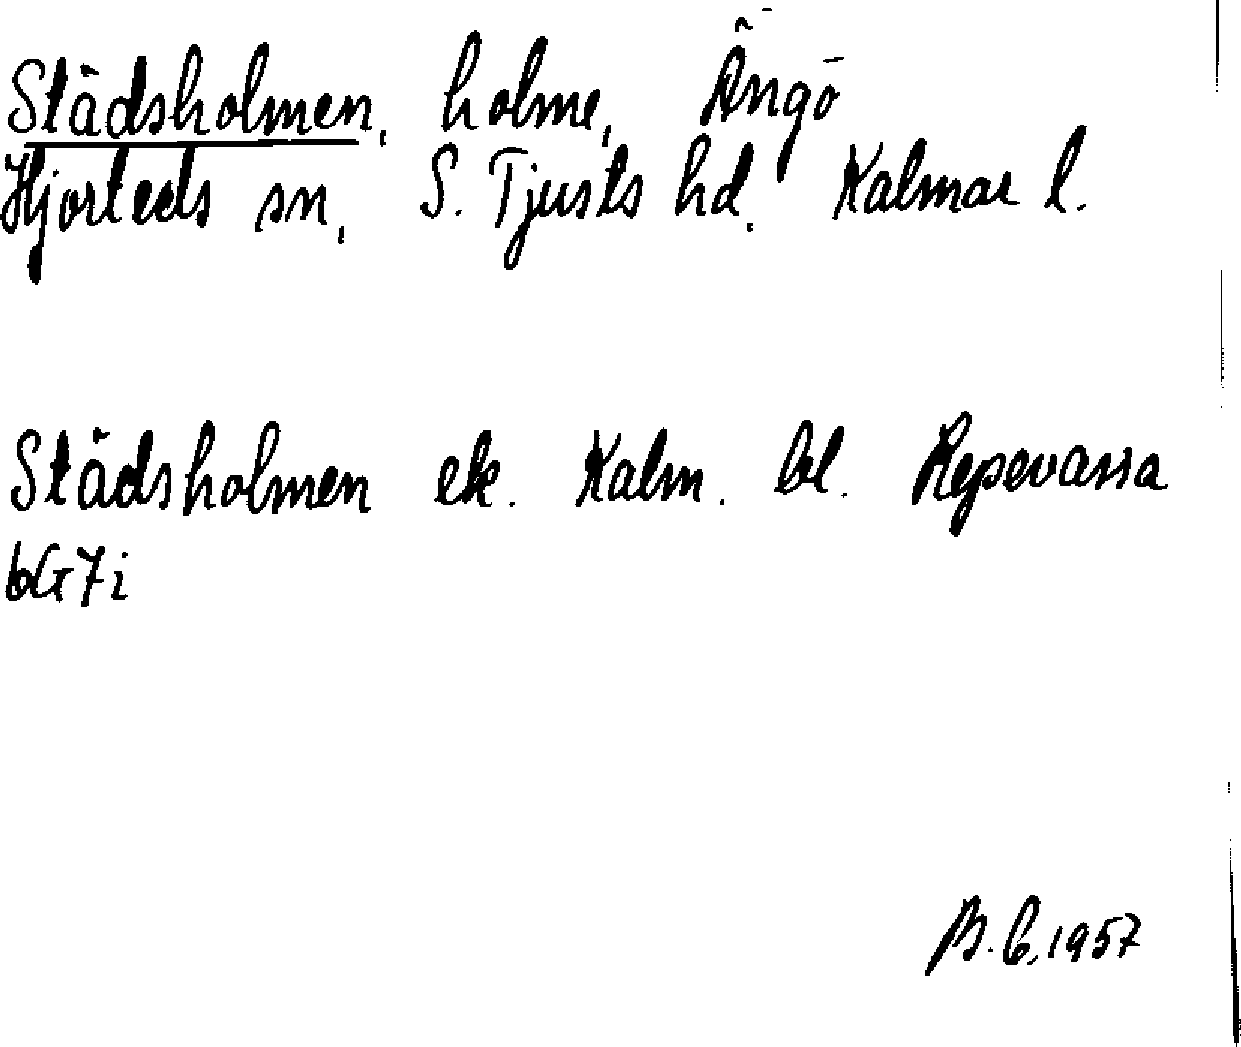 Städsholmen, holme, Ängö
Hjorteds sn, S. Tjusts hd, Kalmar l.
Städsholmen ek. Kalm. bl. Repevarsa
6G7i
B.C. 1957